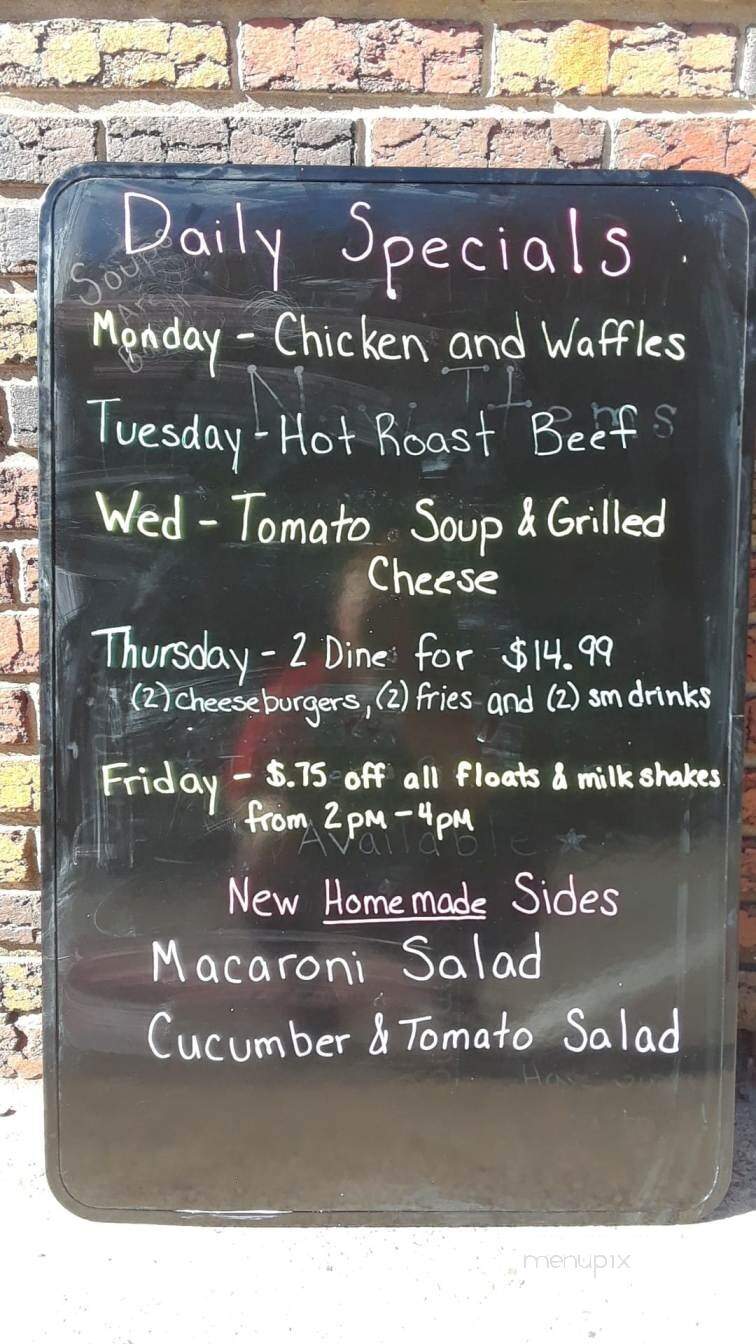 Daily Specials
Soups
Are
Back!!
Monday - Chicken and Waffles
New Items
Tuesday - Hot Roast Beef
Wed - Tomato Soup & Grilled
Cheese
Thursday - 2 Dine for $14.99
(2) cheeseburgers, (2) fries and (2) sm drinks
Friday - $.75 off all floats & milk shakes
from 2PM - 4PM
Available
New Homemade Sides
Macaroni Salad
Cucumber & Tomato Salad
menupix